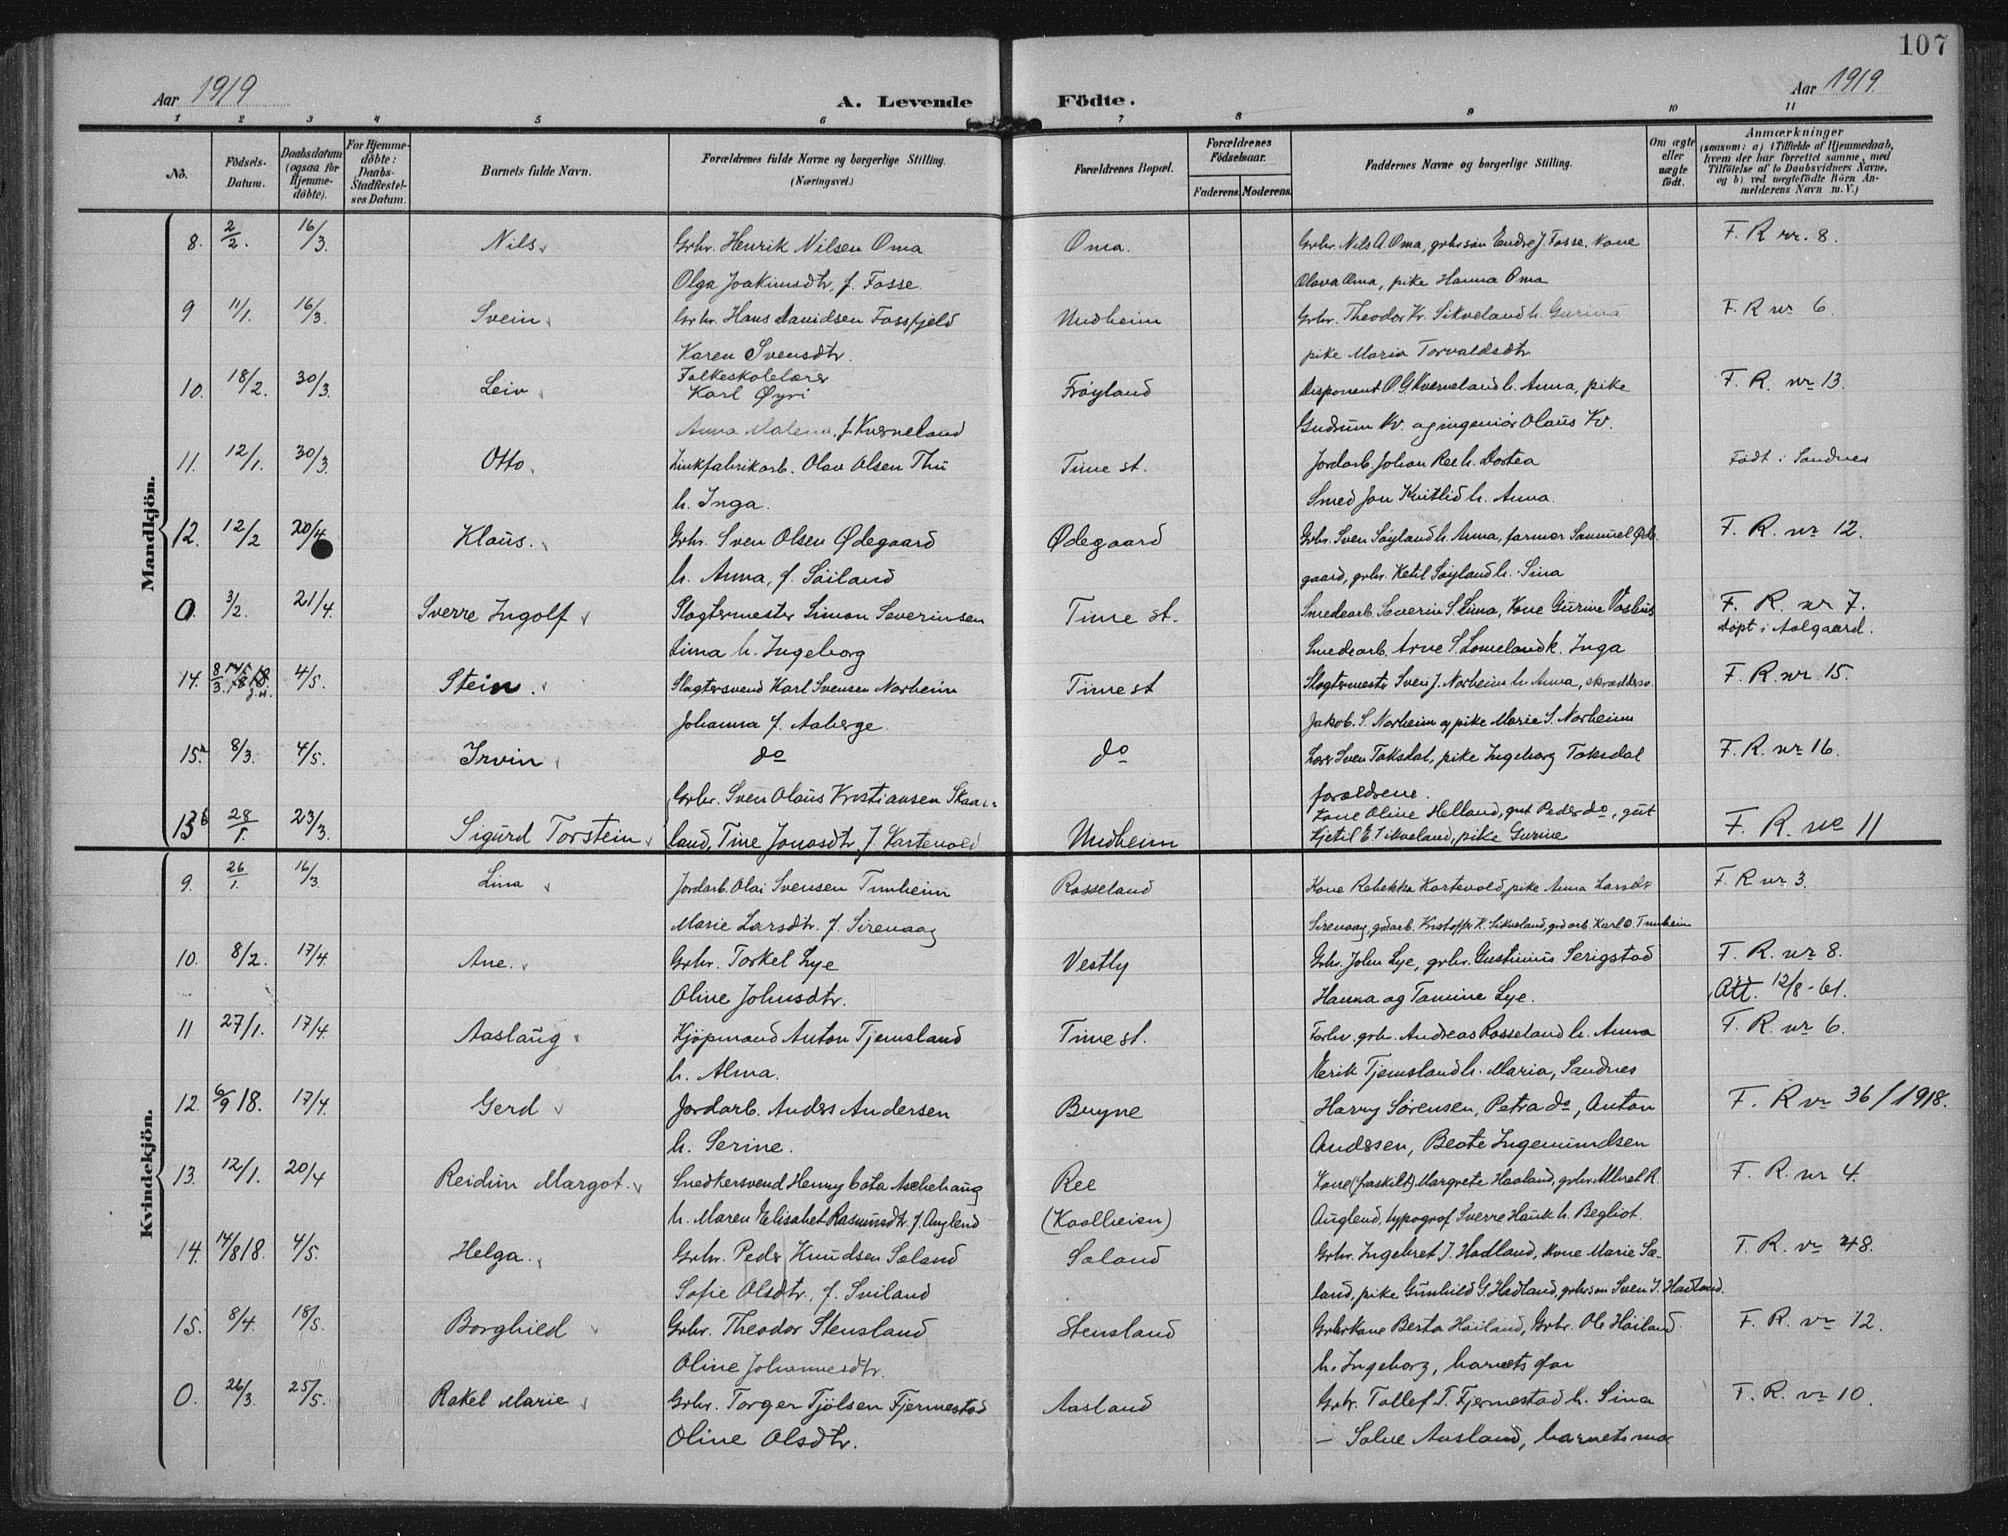 107
Aar 1919 A. Levende Fødte. Aar 1919
1 2 3 4 5 6 7 8 9 10 11
No. Fødsels-Datum. Daabsdatum (ogsaa for Hjemmedøbte). For Hjemmedøbte: Daabs-Stadfæstelses Datum. Barnets fulde Navn. Forældrenes fulde Navne og borgerlige Stilling. (Næringsvei.) Forældrenes Bopæl. Forældrenes Fødselsaar. Faderens. Moderens. Faddernes Navne og borgerlige Stilling. Om ægte eller uægte født. Anmærkninger (saasom: a) i Tilfælde af Hjemmedaab, hvem der har forrettet samme, med Tilføielse af to Daabsvidners Navne, og b) ved uægtefødte Børn Anmelderens Navn m. V.)
Mandkjøn.
8. 2/2. 16/3. Nils Grbr. Henrik Nilsen Oma Oma. Grbr. Nils A. Oma, grbrsøn Endre J. Fosse, Kone F. R nr. 8.
Olga Joakimsdtr, f. Fosse. Olava Oma, pike Hanna Oma
9 11/1. 16/3. Svein Grbr. Hans Davidsen Fossfjeld Undheim Grbr. Theodor Kr. Sikveland h. Gurina F. R nr 6.
Karen Svensdtr. pike Maria Torvaldsdtr
10. 18/2. 30/3. Leiv Folkeskolelærer
Karl Øyri Frøyland Disponent O. G. Kverneland h. Anna, pike F. R. nr 13.
Anna Malena, f. Kverneland Gudrun Kv. og ingeniør Olaus Kv.
11. 12/1. 30/3. Otto Zinkfabrikarb. Olav Olsen Thu Time st. Jordarb. Johan Ree h. Dortea Født i Sandnes
h. Inga. Smed Jon Kvitlid h. Anna.
12. 12/2 20/4 Klaus. Grbr. Sven Olsen Ødegaard Ødegaard Grbr. Sven Søyland h. Anna, farmor Samuel Øde F. R. nr 12.
h. Anna, f. Søiland gaard, grbr. Ketil Søyland h. Sina
0. 3/2. 21/4. Sverre Ingolf Slagtermester Simon Severinsen Time st. Smedearb. Severin S. Lima, Kone Gurine Vashus F. R. nr 7.
døpt i Aalgaard.
Lima h. Ingeborg Smedearb. Arne S. Lomeland k. Inga
14. 8/3. 4/5. Stein. Slagtersvend Karl Svensen Norheim Time st Slagtermester Sven J. Norheim h. Anna, skræddersv. F. R. nr. 15.
Johanna f. Aaberge. Jakob. S. Norheim og pike Marie S. Norheim
15a 8/3. 4/5. Irvin do do Lærer Sven Taksdal, pike Ingeborg Taksdal F. R. nr 16.
forældrene.
Grbr. Sven Olaus Kristiansen Skaar- Kone Oline Helland, gut Peder do, gut
15b 28/1. 23/3. Sigurd Torstein land, Tine Jonasdtr. f. Kartevold Undheim Kjetil E. Sikveland, pike Gurine F. R. no 11
Kvindekjøn.
9. 26/1. 16/3. Lina Jordarb. Olai Svensen Tunheim Rosseland Kone Rebekka Kartevold, pike Anna Larsdtr F. R nr 3.
Marie Larsdtr. f. Sirevaag Sirevaag, gdarb. Kristoffer K. Sikveland, gdarb. Karl O. Tunheim
10. 8/2. 17/4. Ane. Grbr. Torkel Lye Vestly Grbr. John Lye, grbr. Gustinius Serigstad F. R. nr 8.
Oline Johnsdtr. Hanna og Tomine Lye. Att. 12/8-61.
11 27/1. 17/4. Aaslaug Kjøpmand Anton Tjemsland Time st. Forhv. grbr. Andreas Rosseland h. Anna F. R. nr 6.
h. Alma. Eerik Tjemsland h. Maria, Sandnes
12. 6/9 18. 17/4. Gerd Jordarb. Anders Andersen Bryne Harry Sørensen, Petra do, Anton F. R nr 36/1918.
h. Serine. Andersen, Beate Ingemundsen
13. 12/1. 20/4 Reidun Margot. Snedkersvend Henny Cato Aschehaug Ree Kone (fraskilt) Margrete Haaland, grbr. Albret R. F. R. nr 4.
h. Maren Elisabet Rasmusdtr. f. Auglend (Kaalheien) Auglend, typograf Sverre Hauk h. Begliot.
14. 14/8 18. 4/5. Helga. Grbr. Peder Knudsen Saland Saland Grbr. Ingebret J. Hadland, Kone Marie Sæ- F. R. nr 48.
Sofie Olsdtr. f. Sviland land, pike Gunhild G. Hadland, grbrsøn Sven I. Hadland.
15. 8/4. 18/5. Borghild Grbr. Theodor Stensland Stensland Grbrkone Berta Høiland, Grbr. Ole Høiland F. R. nr 12.
Oline Johannesdtr. h. Ingeborg, barnets far
0. 26/3. 25/5. Rakel Marie Grbr. Torger Tjølsen Fjermestad Aasland Grbr. Tollef T. Fjermestad h. Sina F. R. nr 10.
Oline Olsdtr. — Salve Aasland, barnets mor